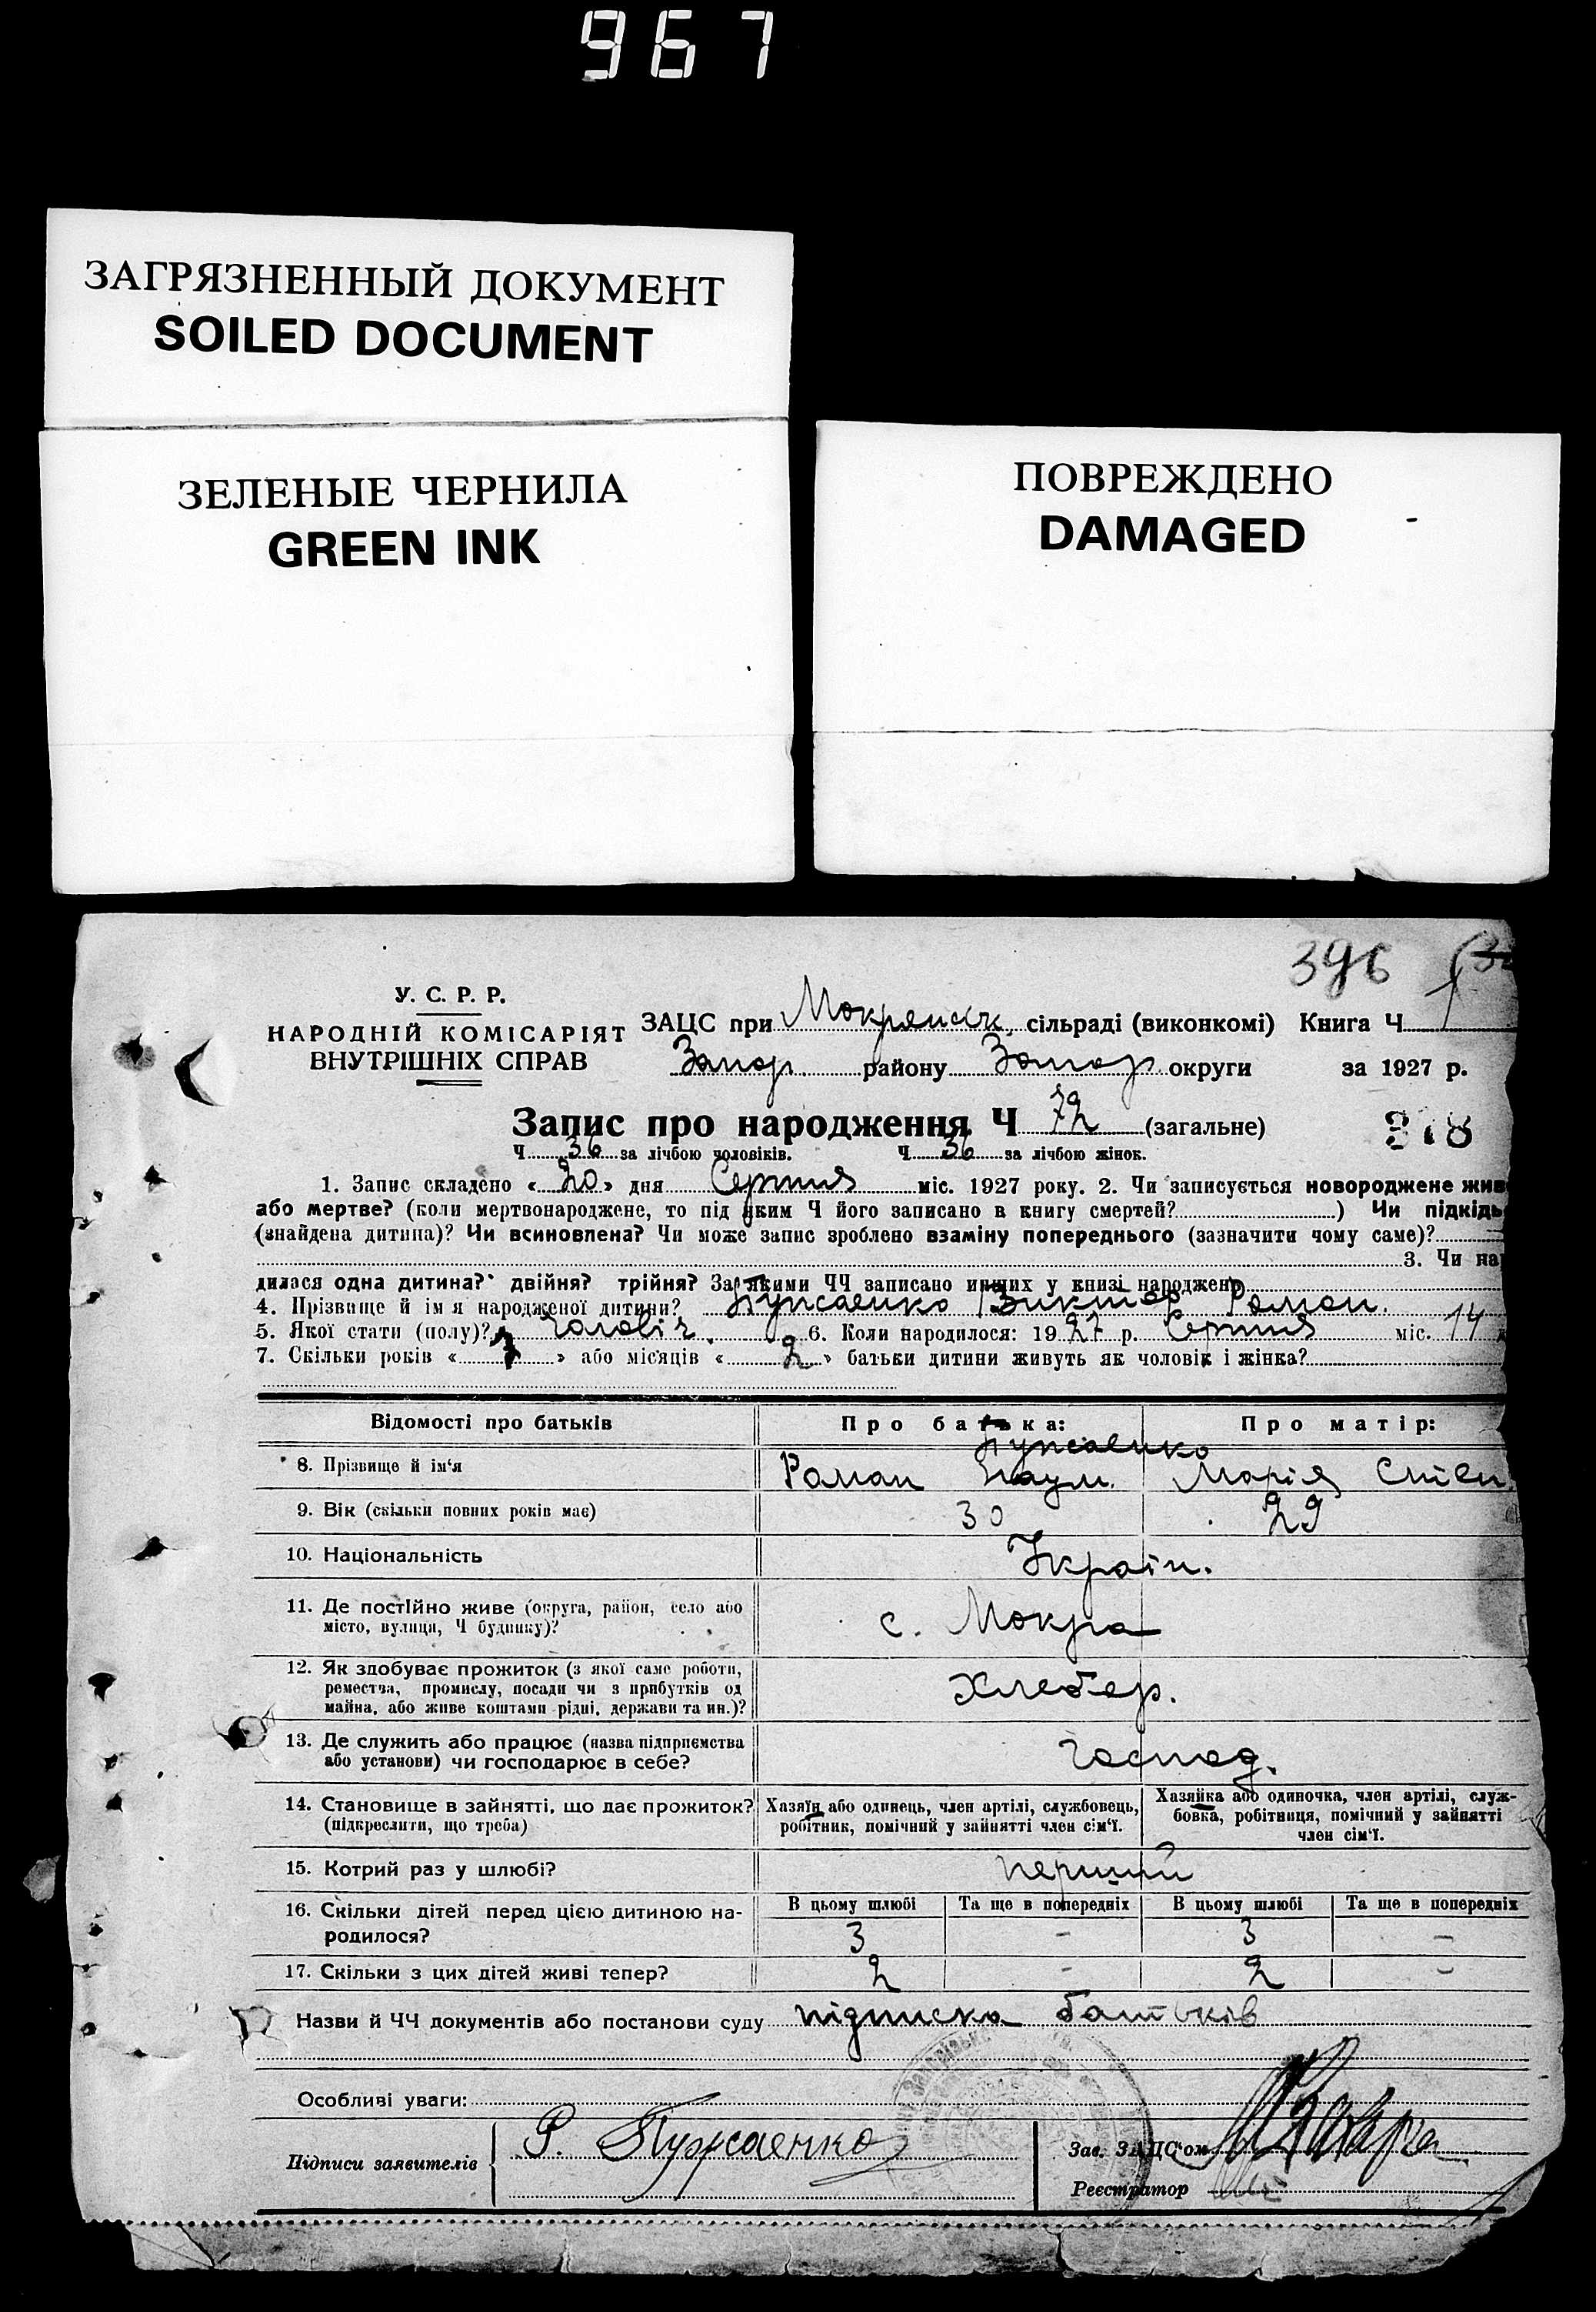 967
ЗАГРЯЗНЕННЫЙ ДОКУМЕНТ
SOILED DOCUMENT
ЗЕЛЕНЫЕ ЧЕРНИЛА
GREEN INK
ПОВРЕЖДЕНО
DAMAGED
396
У. С. Р. Р.
НАРОДНІЙ КОМІСАРІЯТ
ВНУТРІШНІХ СПРАВ
ЗАЦС при Мокрянск. сільраді (виконкомі) Книга Ч 1
Запор. району Запор округи за 1927 р.
Запис про народження Ч 72 (загальне) 378
Ч 36 за лічбою чоловіків. Ч 36 за лічбою жінок.
1. Запис складено « 20 » дня Серпня міс. 1927 року. 2. Чи записується новороджене жив
або мертве? (коли мертвонароджене, то під яким Ч його записано в книгу смертей? ) Чи підкідь
(знайдена дитина)? Чи всиновлена? Чи може запис зроблено взаміну попереднього (зазначити чому саме)?
3. Чи на
дилася одна дитина? двійня? трійня? За якими ЧЧ записано инших у книзі народжень
4. Прізвище й ім'я народженої дитини? Пужаенко Виктор Роман.
5. Якої стати (полу)? Чоловіч. 6. Коли народилося: 1927 р. Серпня міс. 14
7. Скільки років « 7 » або місяців « 2 » батьки дитини живуть як чоловік і жінка?
Відомості про батьків Про батька: Про матір:
Пужаенко
8. Прізвище й ім'я Роман Наум. Марія Степ
9. Вік (скільки повних років має) 30 29
10. Національність Україн.
11. Де постійно живе (округа, район, село або
місто, вулиця, Ч будинку)? с. Мокра
12. Як здобуває прожиток (з якої саме роботи,
ремества, промислу, посади чи з прибутків од
майна, або живе коштами рідні, держави та ин.)? Хлебор.
13. Де служить або працює (назва підприємства
або установи) чи господарює в себе? Господ.
14. Становище в зайнятті, що дає прожиток?
(підкреслити, що треба)
Хазяїн або одинець, член артілі, службовець,
робітник, помічний у зайнятті член сім'ї.
Хазяйка або одиночка, член артілі, служ-
бовка, робітниця, помічний у зайнятті
член сім'ї.
15. Котрий раз у шлюбі? перший
16. Скільки дітей перед цією дитиною на-
родилося?
В цьому шлюбі Та ще в попередніх В цьому шлюбі Та ще в попередніх
3 - 3 -
17. Скільки з цих дітей живі тепер? 2 - 2 -
Назви й ЧЧ документів або постанови суду підписка батьків
Особливі уваги:
Підписи заявителів Р. Пужаенко
Зав. ЗАЦС'ом
Реєстратор